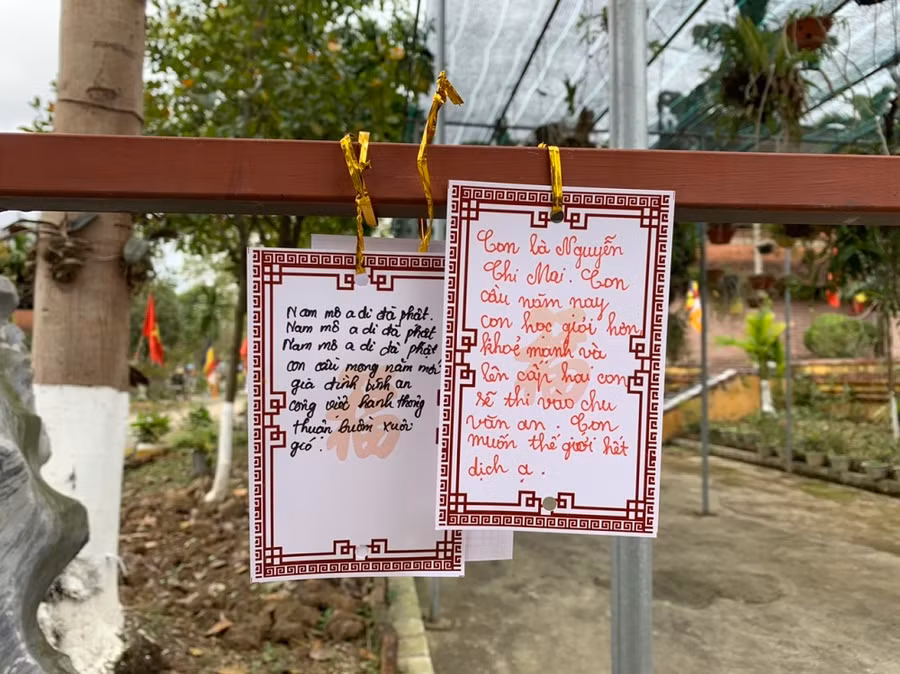 Nam mô a di đà phật.
Nam mô a di đà phật
Nam mô a di đà phật
con cầu mong năm mới
gia đình bình an
công việc hanh thông
thuận buồm xuôi
gió.
福
Con là Nguyễn
Thi Mai. Con
cầu năm nay
con học giỏi hơn,
khoẻ mạnh và
lên cấp hai con
sẽ thi vào chu
văn an. Con
muốn thế giới hết
dịch ạ.
福